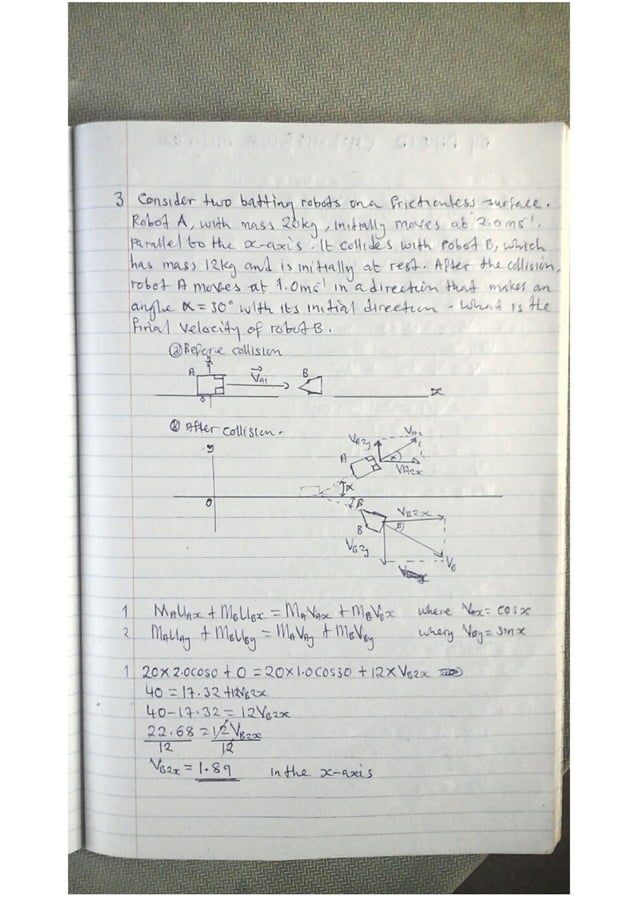 3 Consider two batting robots on a frictionless surface.
Robot A, with mass 20kg, initially moves at 2.0ms⁻¹.
Parallel to the x-axis. It collides with robot B, which
has mass 12kg and is initially at rest. After the collision,
robot A moves at 1.0ms⁻¹ in a direction that makes an
angle α = 30° with its initial direction. What is the
Final Velocity of robot B.
ⓐ Before collision
A V⃗A1 B
0 x
After collision.
y
VA2y VA2
A α VA2x
0 α
β
VB2x
B β
VB2y
VB
1 MAUAx + MBUBx = MAVAx + MBVBx where VAx = cosx
2 MAUAy + MBUBy = MAVAy + MBVBy where VBy = sinx
1 20 x 2.0cos0 + 0 = 20 x 1.0 cos30 + 12 x VB2x
40 = 17.32 + 12VB2x
40 - 17.32 = 12VB2x
22.68 = 12VB2x
12 12
VB2x = 1.89 in the x-axis